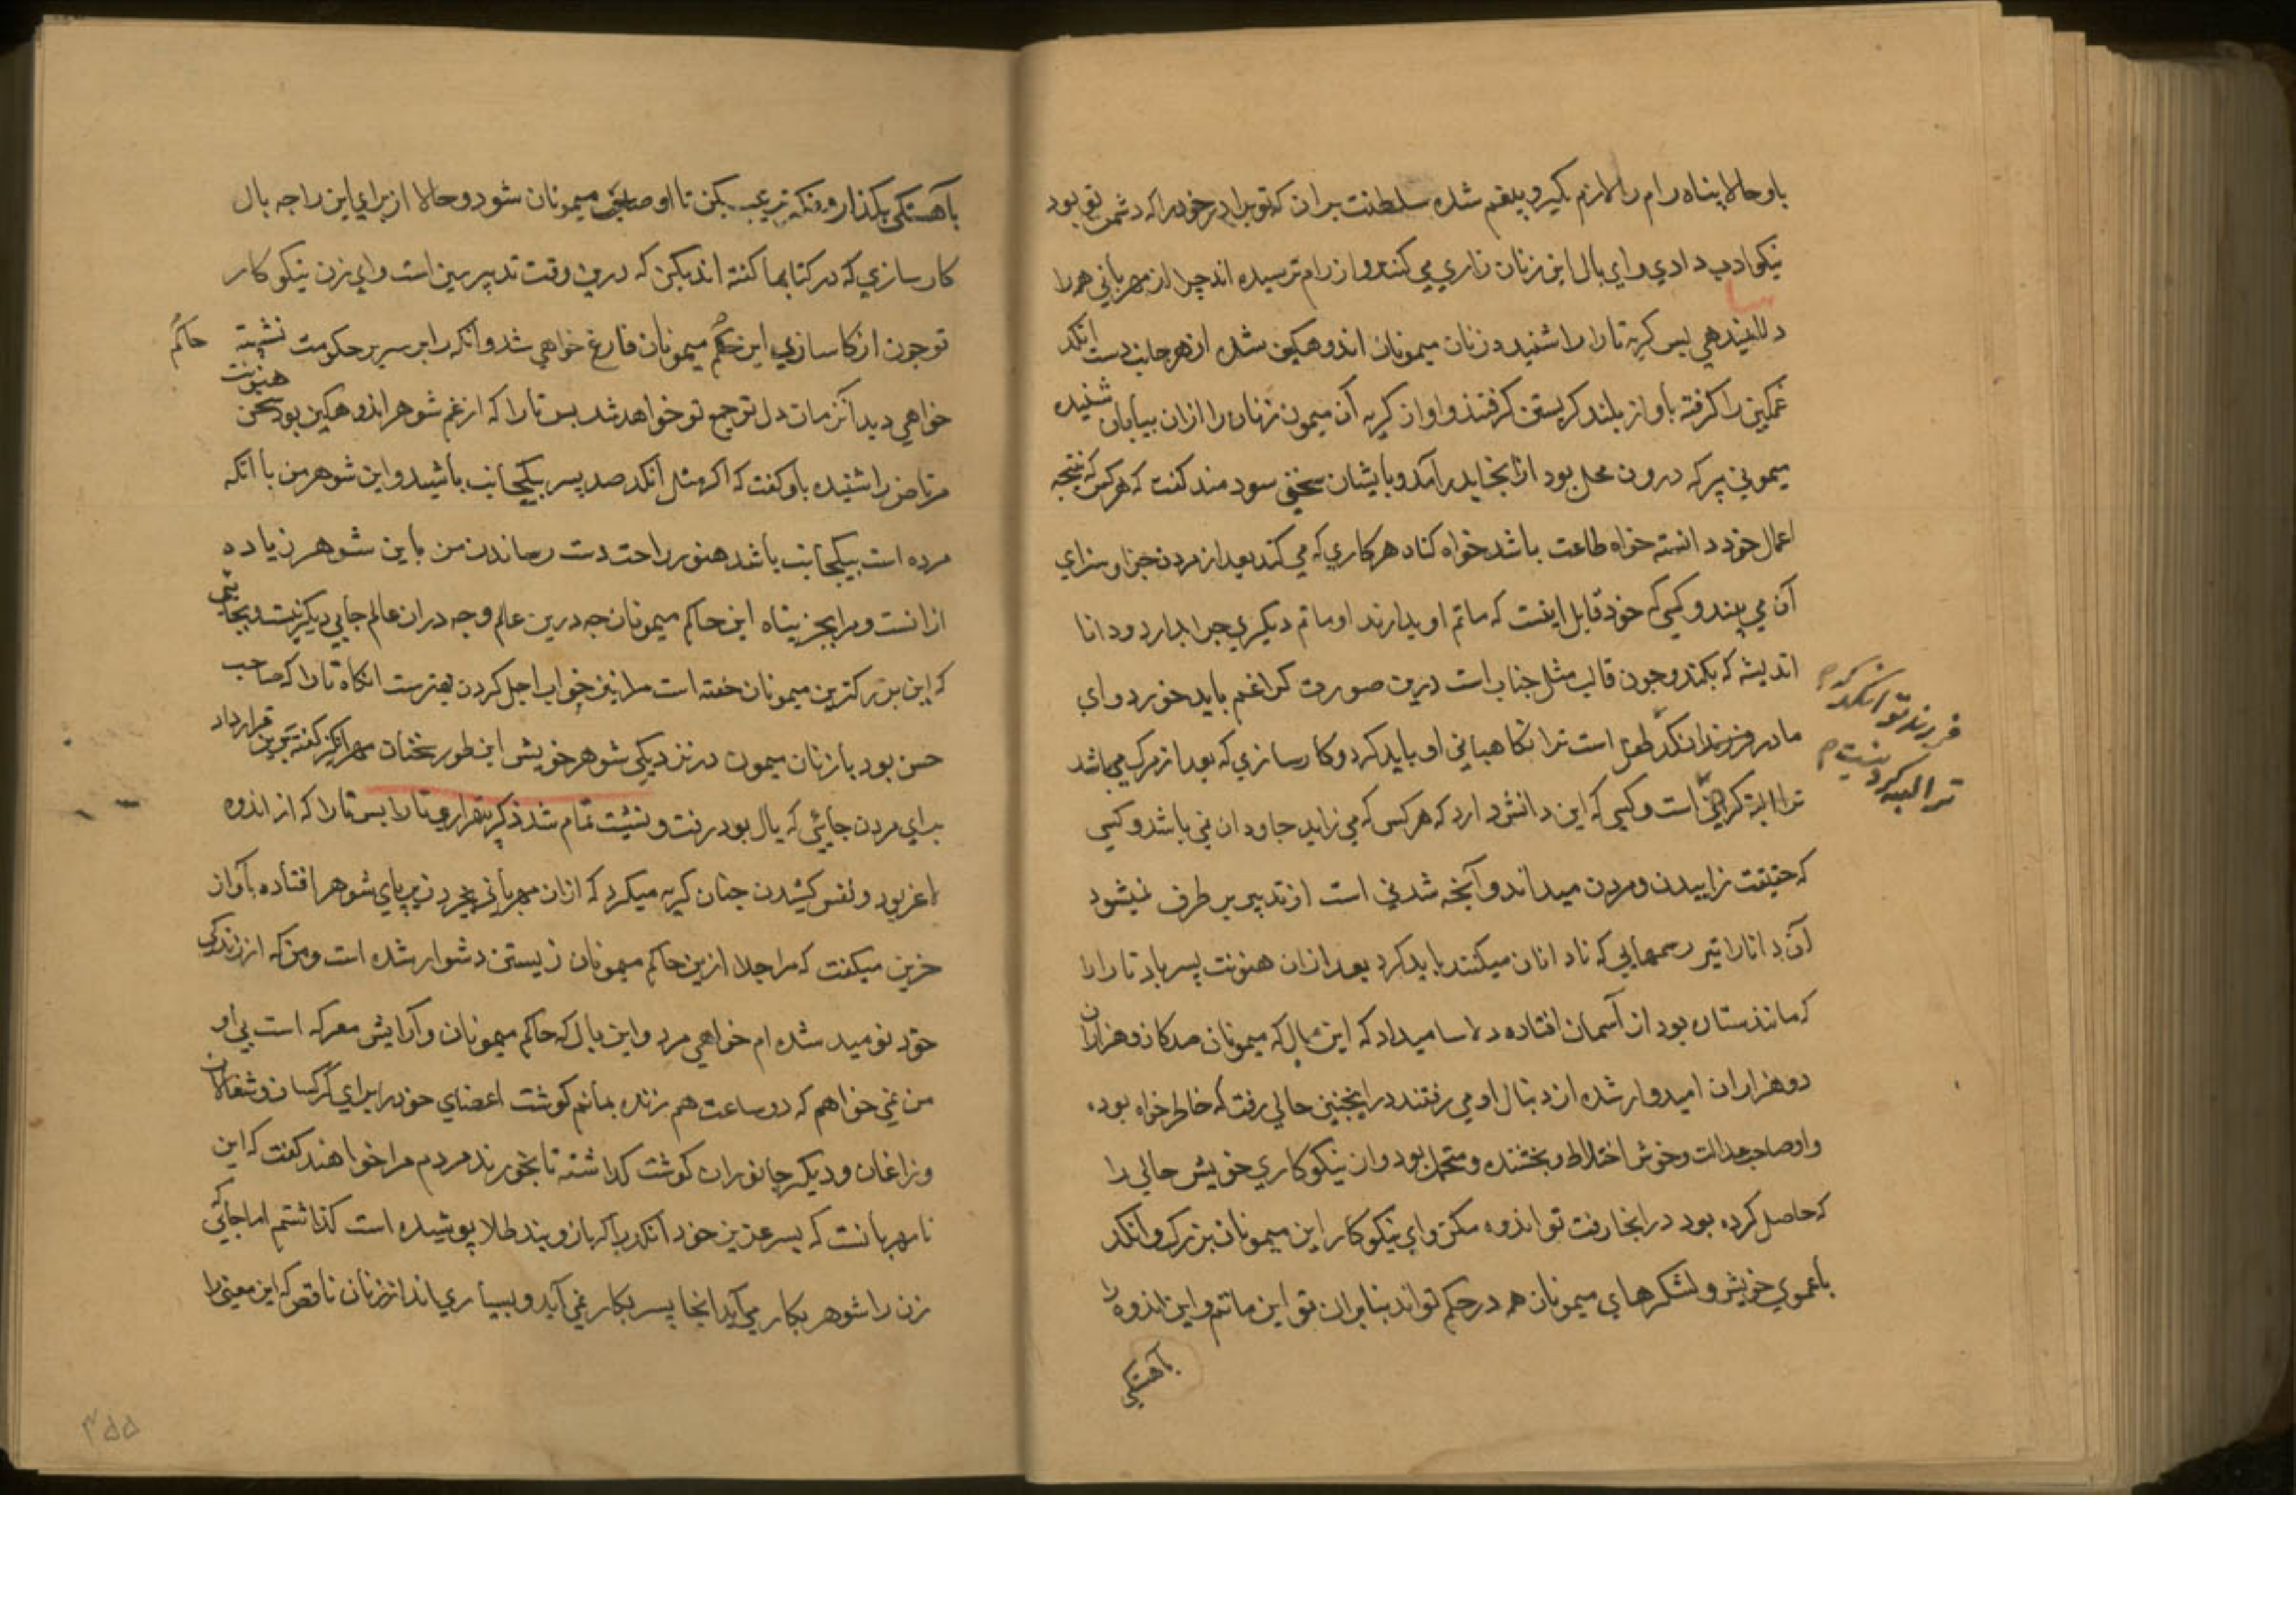 باو حالا پناه رام را لازم بگیر و بیغم شده سلطنت بران که تو برادر خود را که دشمن تو بود
نیکو ادب دادی و ای بال این زنان زاری می کنند و از رام ترسیده اند چرا از مهربانی همه را
دلاسا نمیدهی پس گریه تارا را شنیده زنان میمونان اندوهگین شده از هر جانب دست انگد
غمگین را گرفته بآواز بلند گریستن گرفتند و آواز گریه آن میمون زنان را ازان بیابان شنیده
میمونی پر که درون محل بود ازانجا بدر آمد و بایشان سخنی سودمند گفت که هر کس که نتیجه
اعمال خود دانسته خواه طاعت باشد خواه گناه هر کاری که می کند بعد از مردن جزا و سزای
آن می بیند و کسی که خود قابل اینست که ماتم او بدارند او ماتم دیگری چرا بدارد و دانا
اندیشه که بکند و چون قالب مثل حباب است درین صورت کرا غم باید خورد و ای
مادر فرزند انگد طفل است ترا نگاهبانی او باید کرد و کارسازی که بعد از مرگ می باشد
فرزند تو انگد
ترا البته کردنیست
ترا البته کردنی است و کسی که این دانش دارد که هر کس که می زاید جاودان نمی باشد و کسی
که حقیقت زاییدن و مردن میداند و آنچه شدنی است از تدبیر بر طرف نمیشود
آن دانا را نیز رسمهایی که نادانان میکنند باید کرد بعد ازان هنونت پسر باد تارا را
که مانند ستاره بود از آسمان افتاده دلاسا میداد که این بال که میمونان صدگان و هزاران
دو هزاران امیدوار شده از دنبال او می رفتند در اینچنین حالی رفت که خاطر خواه بود
و او صاحب عدالت و خوش اختلاط و بخشنده و متحمل بود و از نیکو کاری خویش حالی را
که حاصل کرده بود در انجا رفت تو اندوه مکن و ای نیکو کار این میمونان بزرگ و انگد
با عموی خویش و لشکرهای میمونان همه در حکم تواند بنابران تو این ماتم و این اندوه را
بآهستگی
بآهستگی بگذار و انگد را ترغیب بکن تا او صاحب میمونان شود و حالا از برای این راجه بال
کارسازی که در کتابها گفته اند بکن که درین وقت تدبیر همین است و ای زن نیکو کار
تو چون از کارسازی این حاکم میمونان فارغ خواهی شد و انگد را بر سریر حکومت نشسته
حاکم
خواهی دید آنزمان دل تو جمع تو خواهد شد پس تارا که از غم شوهر اندوهگین بود سخن
هنونت
مرتاض را شنیده باو گفت که اگر مثل انگد صد پسر بیکجانب باشند و این شوهر من با آنکه
مرده است بیکجانب باشد هنوز راحت دست رساندن من باین شوهر زیاده
ازانست و مرا بجز پناه این حاکم میمونان چه درین عالم و چه دران عالم جایی دیگر نیست و بجایی
که این بزرگترین میمونان خفته است مرا نیز خواب اجل کردن بهتر است آنگاه تارا که صاحب
حسن بود با زنان میمون در نزدیکی شوهر خویش این طور سخنان مهر انگیز گفته بخویش قرار داد
برای مردن جائی که بال بود رفت و نشست تمام شد ذکر بیقراری تارا پس تارا که از اندوه
لاغر بود و نفس کشیدن چنان گریه میکرد که ازان مهربانی بخرد زیر پای شوهر افتاده بآواز
حزین میگفت که مرا جدا ازین حاکم میمونان زیستن دشوار شده است و من که از زندگی
خود نومید شده ام خواهی مرد و این بال که حاکم میمونان و آرایش معرکه است بی او
من نمی خواهم که دو ساعت هم زنده بمانم گوشت اعضای خود را برای گرگسان و شغالان
و زاغان و دیگر جانوران گوشت گذاشته تا بخورند مردم مرا خواهند گفت که این
نامهربانست که پسر عزیز خود انگد را که بازوبند طلا پوشیده است گذاشتم اما جائی
زن را شوهر بکار می آید انجا پسر بکار نمی آید و بسیاری اند از زنان ناقص که این معنی را
۳۵۵